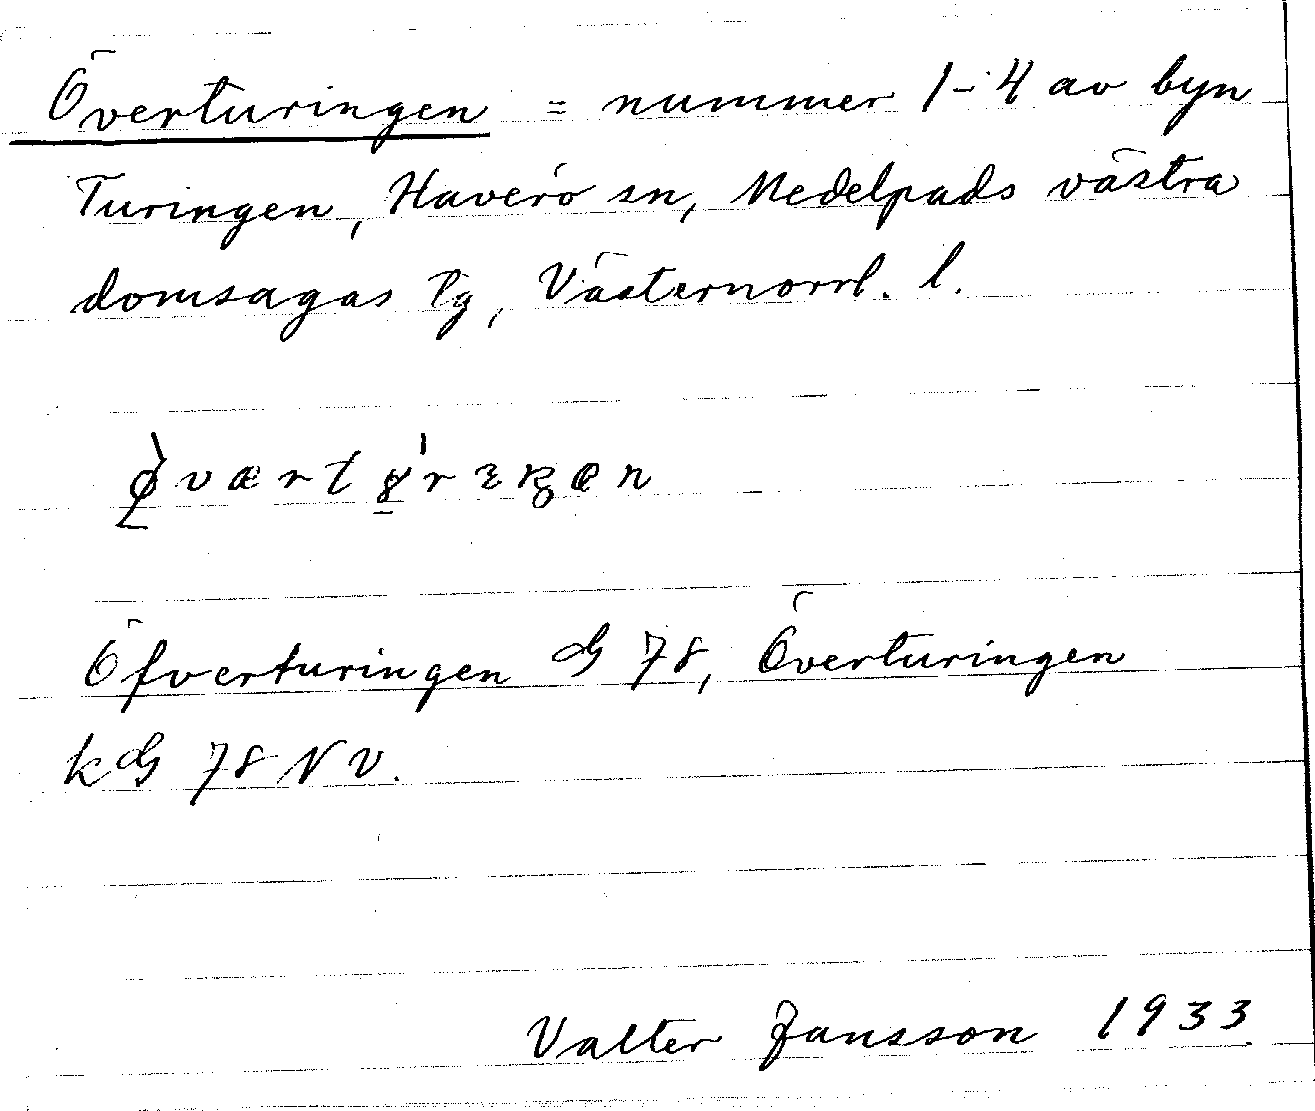 Överturingen = nummer 1-4 av byn
Turingen, Haverö sn, Medelpads västra
domsagas tg, Västernorrl. l.
Öfverturingen G 78, Överturingen
kG 78 NV.
Valter Jansson 1933